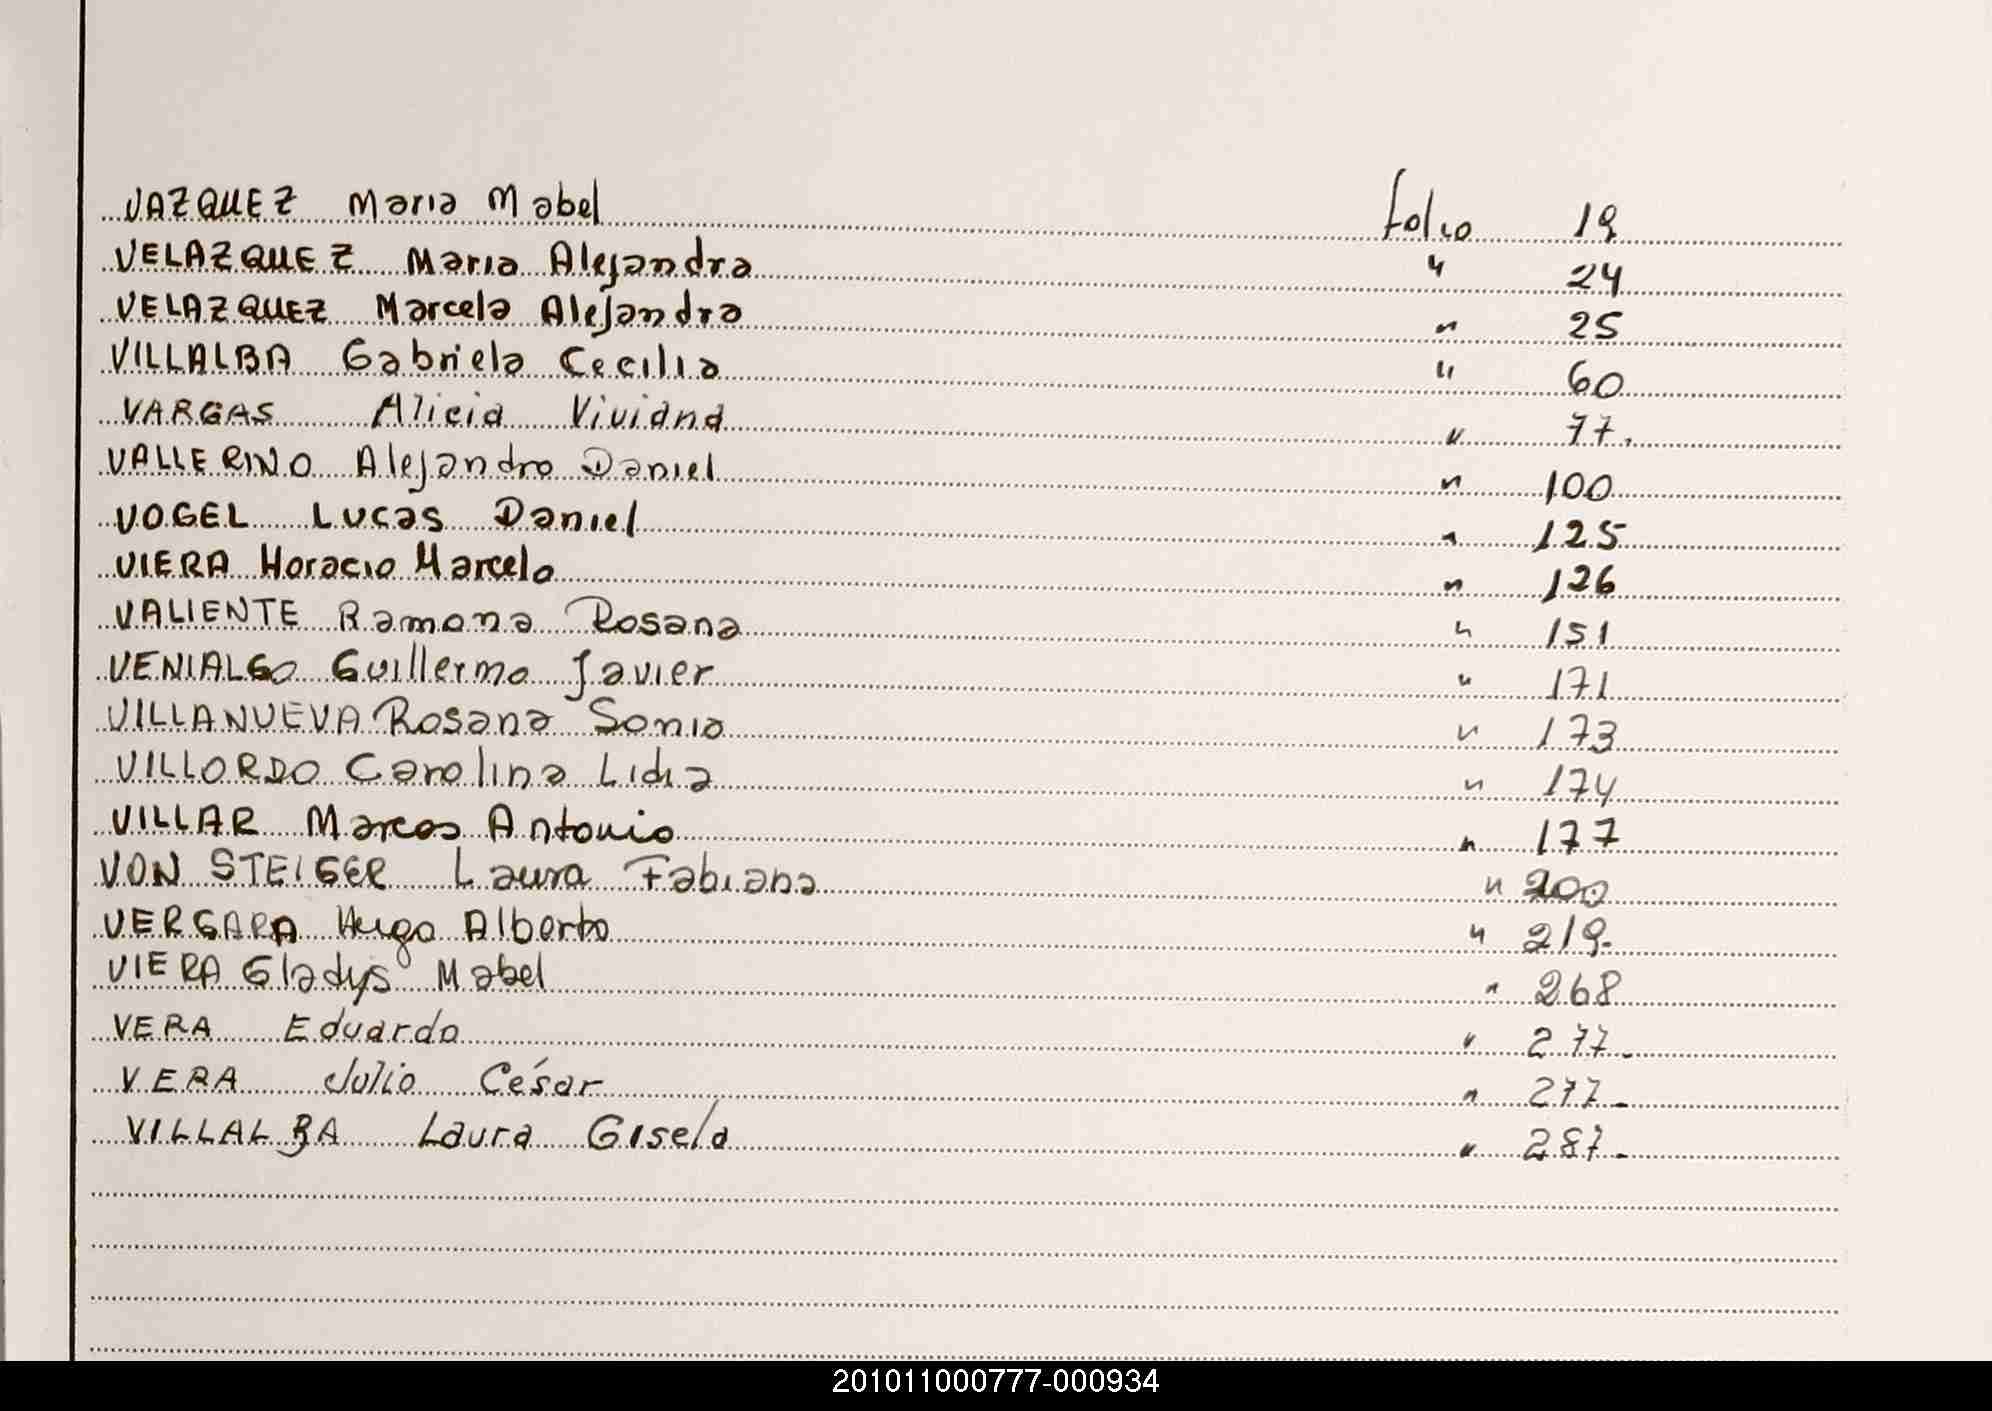 VAZQUEZ Maria Mabel folio 19
VELAZQUEZ Maria Alejandra " 24
VELAZQUEZ Marcela Alejandra " 25
VILLALBA Gabriela Cecilia " 60
VARGAS Alicia Viviana " 77.
VALLERINO Alejandro Daniel " 100
VOGEL Lucas Daniel " 125
VIERA Horacio Marcelo " 126
VALIENTE Ramona Rosana " 151
VENIALGO Guillermo Javier " 171
VILLANUEVA Rosana Sonia " 173
VILLORDO Carolina Lidia " 174
VILLAR Marcos Antonio " 177
VON STEIGER Laura Fabiana " 200
VERGARA Hugo Alberto " 219.
VIERA Gladys Mabel " 268
VERA Eduardo " 277.
VERA Julio César " 277.
VILLALBA Laura Gisela " 287.
201011000777-000934